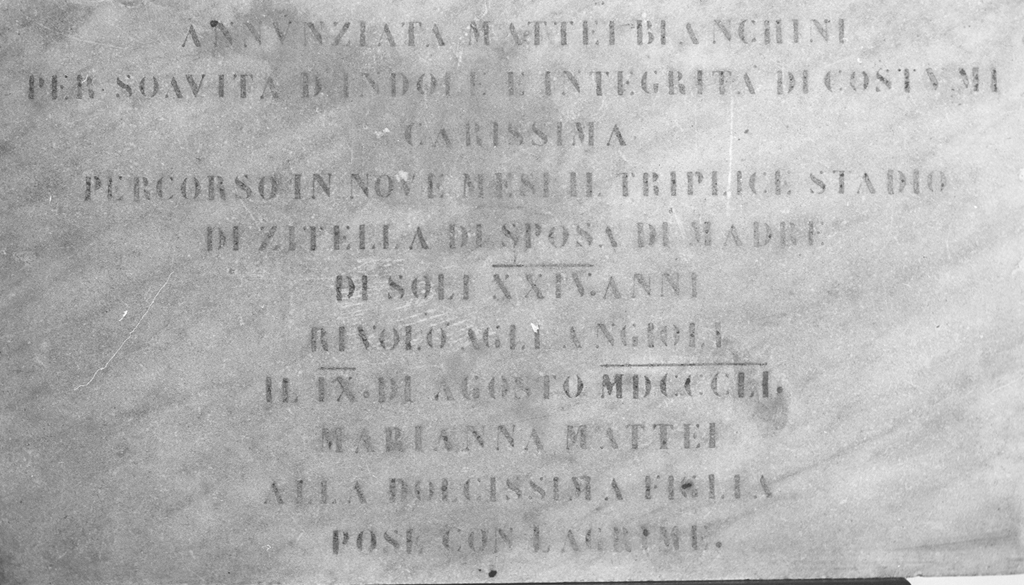 ANNVNZIATA MATTEI BIANCHINI
PER SOAVITA D'INDOLE E INTEGRITA DI COSTVMI
CARISSIMA
PERCORSO IN NOVE MESI IL TRIPLICE STADIO
DI ZITELLA DI SPOSA DI MADRE
DI SOLI XXIV. ANNI
RIVOLO AGLI ANGIOLI
IL IX. DI AGOSTO MDCCCLI.
MARIANNA MATTEI
ALLA DOLCISSIMA FIGLIA
POSE CON LAGRIME.